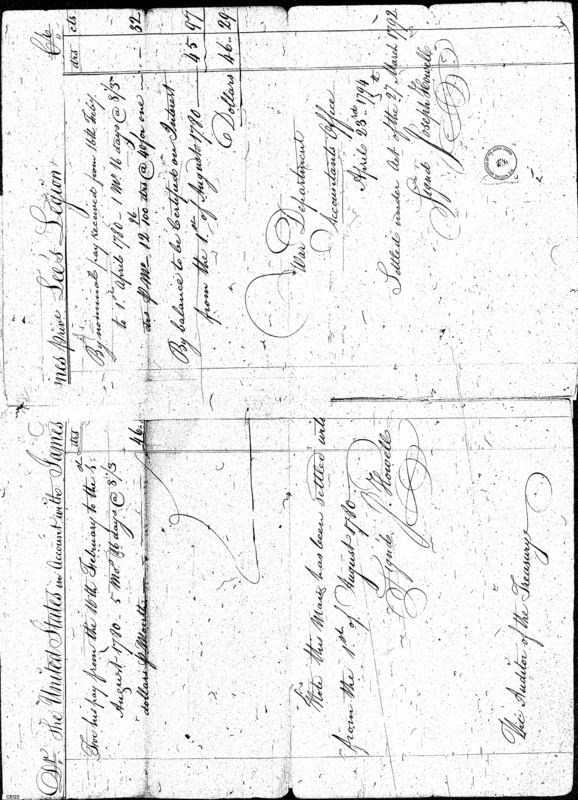 Dr. The United States in Account with James
drs
For his pay from the 16th February to the 1st
August 1780 5 Mos 16 days @ 8 1/3
dollars P Month
46.
Note this Man has been settled with
from the 1st of August 1780.
Signd J. Howell
The Auditor of the Treasury
mes privt Lee's Legion
Cr
drs cts
By nominal pay received from 16th Feby
to 1st April 1780 - 1 Mo 16 days @ 8 1/3
drs P Mo 12 100 drs @ 40 for one
32
By balance to be Certified on Interest
from the 1st of August 1780
45 97
Dollars 46. 29
War Department
Accountants Office
April 23rd 1794
Settled under Act of the 27 March 1792.
Signd Joseph Howell
CE122